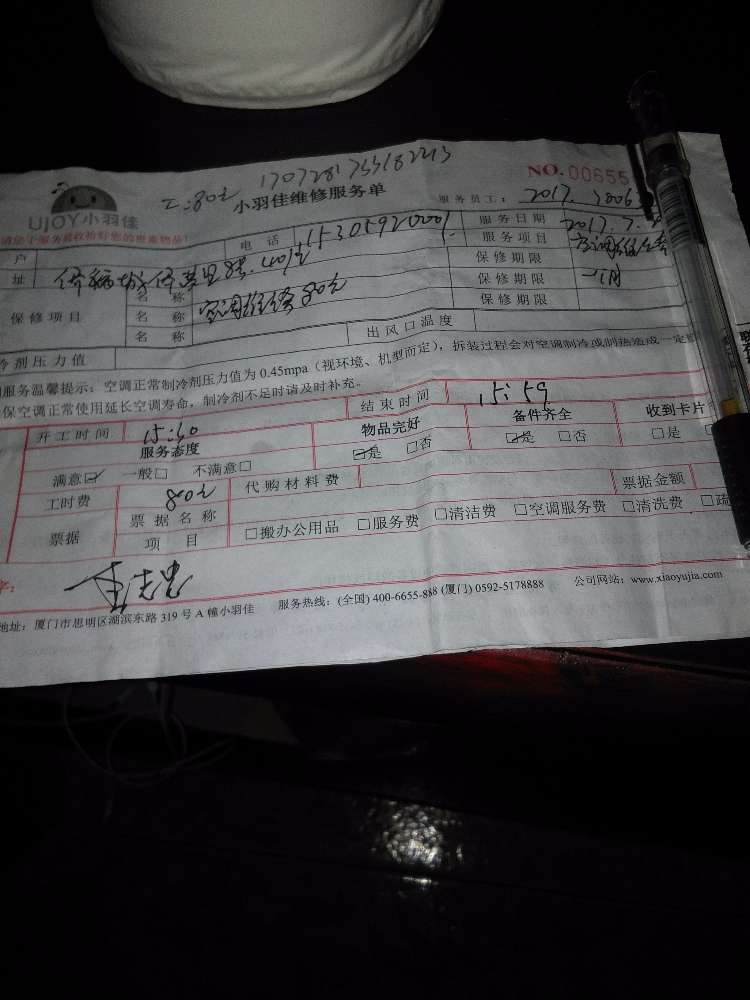 工:80元 1707281755182213
NO.00655
UJOY小羽佳
小羽佳维修服务单
服务员工:
电话 15305920001 服务日期 2017.7.
户 服务项目 空调维修
址 侨福城侨英里 保修期限
保修项目 名称 空调维修80元 保修期限 一个月
名称 保修期限
名称 出风口温度
冷剂压力值
服务温馨提示:空调正常制冷剂压力值为 0.45mpa(视环境、机型而定),拆装过程会对空调制冷或制热造成一定
保空调正常使用延长空调寿命,制冷剂不足时请及时补充。
开工时间 15:30 结束时间 15:59
服务态度 物品完好 备件齐全 收到卡片
满意☑ 一般□ 不满意□ ☑是 □否 ☑是 □否 □是
工时费 80元 代购材料费 票据金额
票据 票据名称
项目 □搬办公用品 □服务费 □清洁费 □空调服务费 □清洗费 □疏
地址:厦门市思明区湖滨东路 319 号 A 幢小羽佳 服务热线:(全国) 400-6655-888 (厦门) 0592-5178888 公司网站:www.xiaoyujia.com